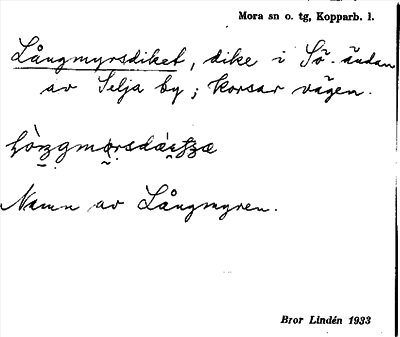 Mora sn o. tg, Kopparb. l.
Långmyrsdiket, dike i Sö-ändan
av Selja by; korsar vägen.
Namn av Långmyren.
Bror Lindén 1933